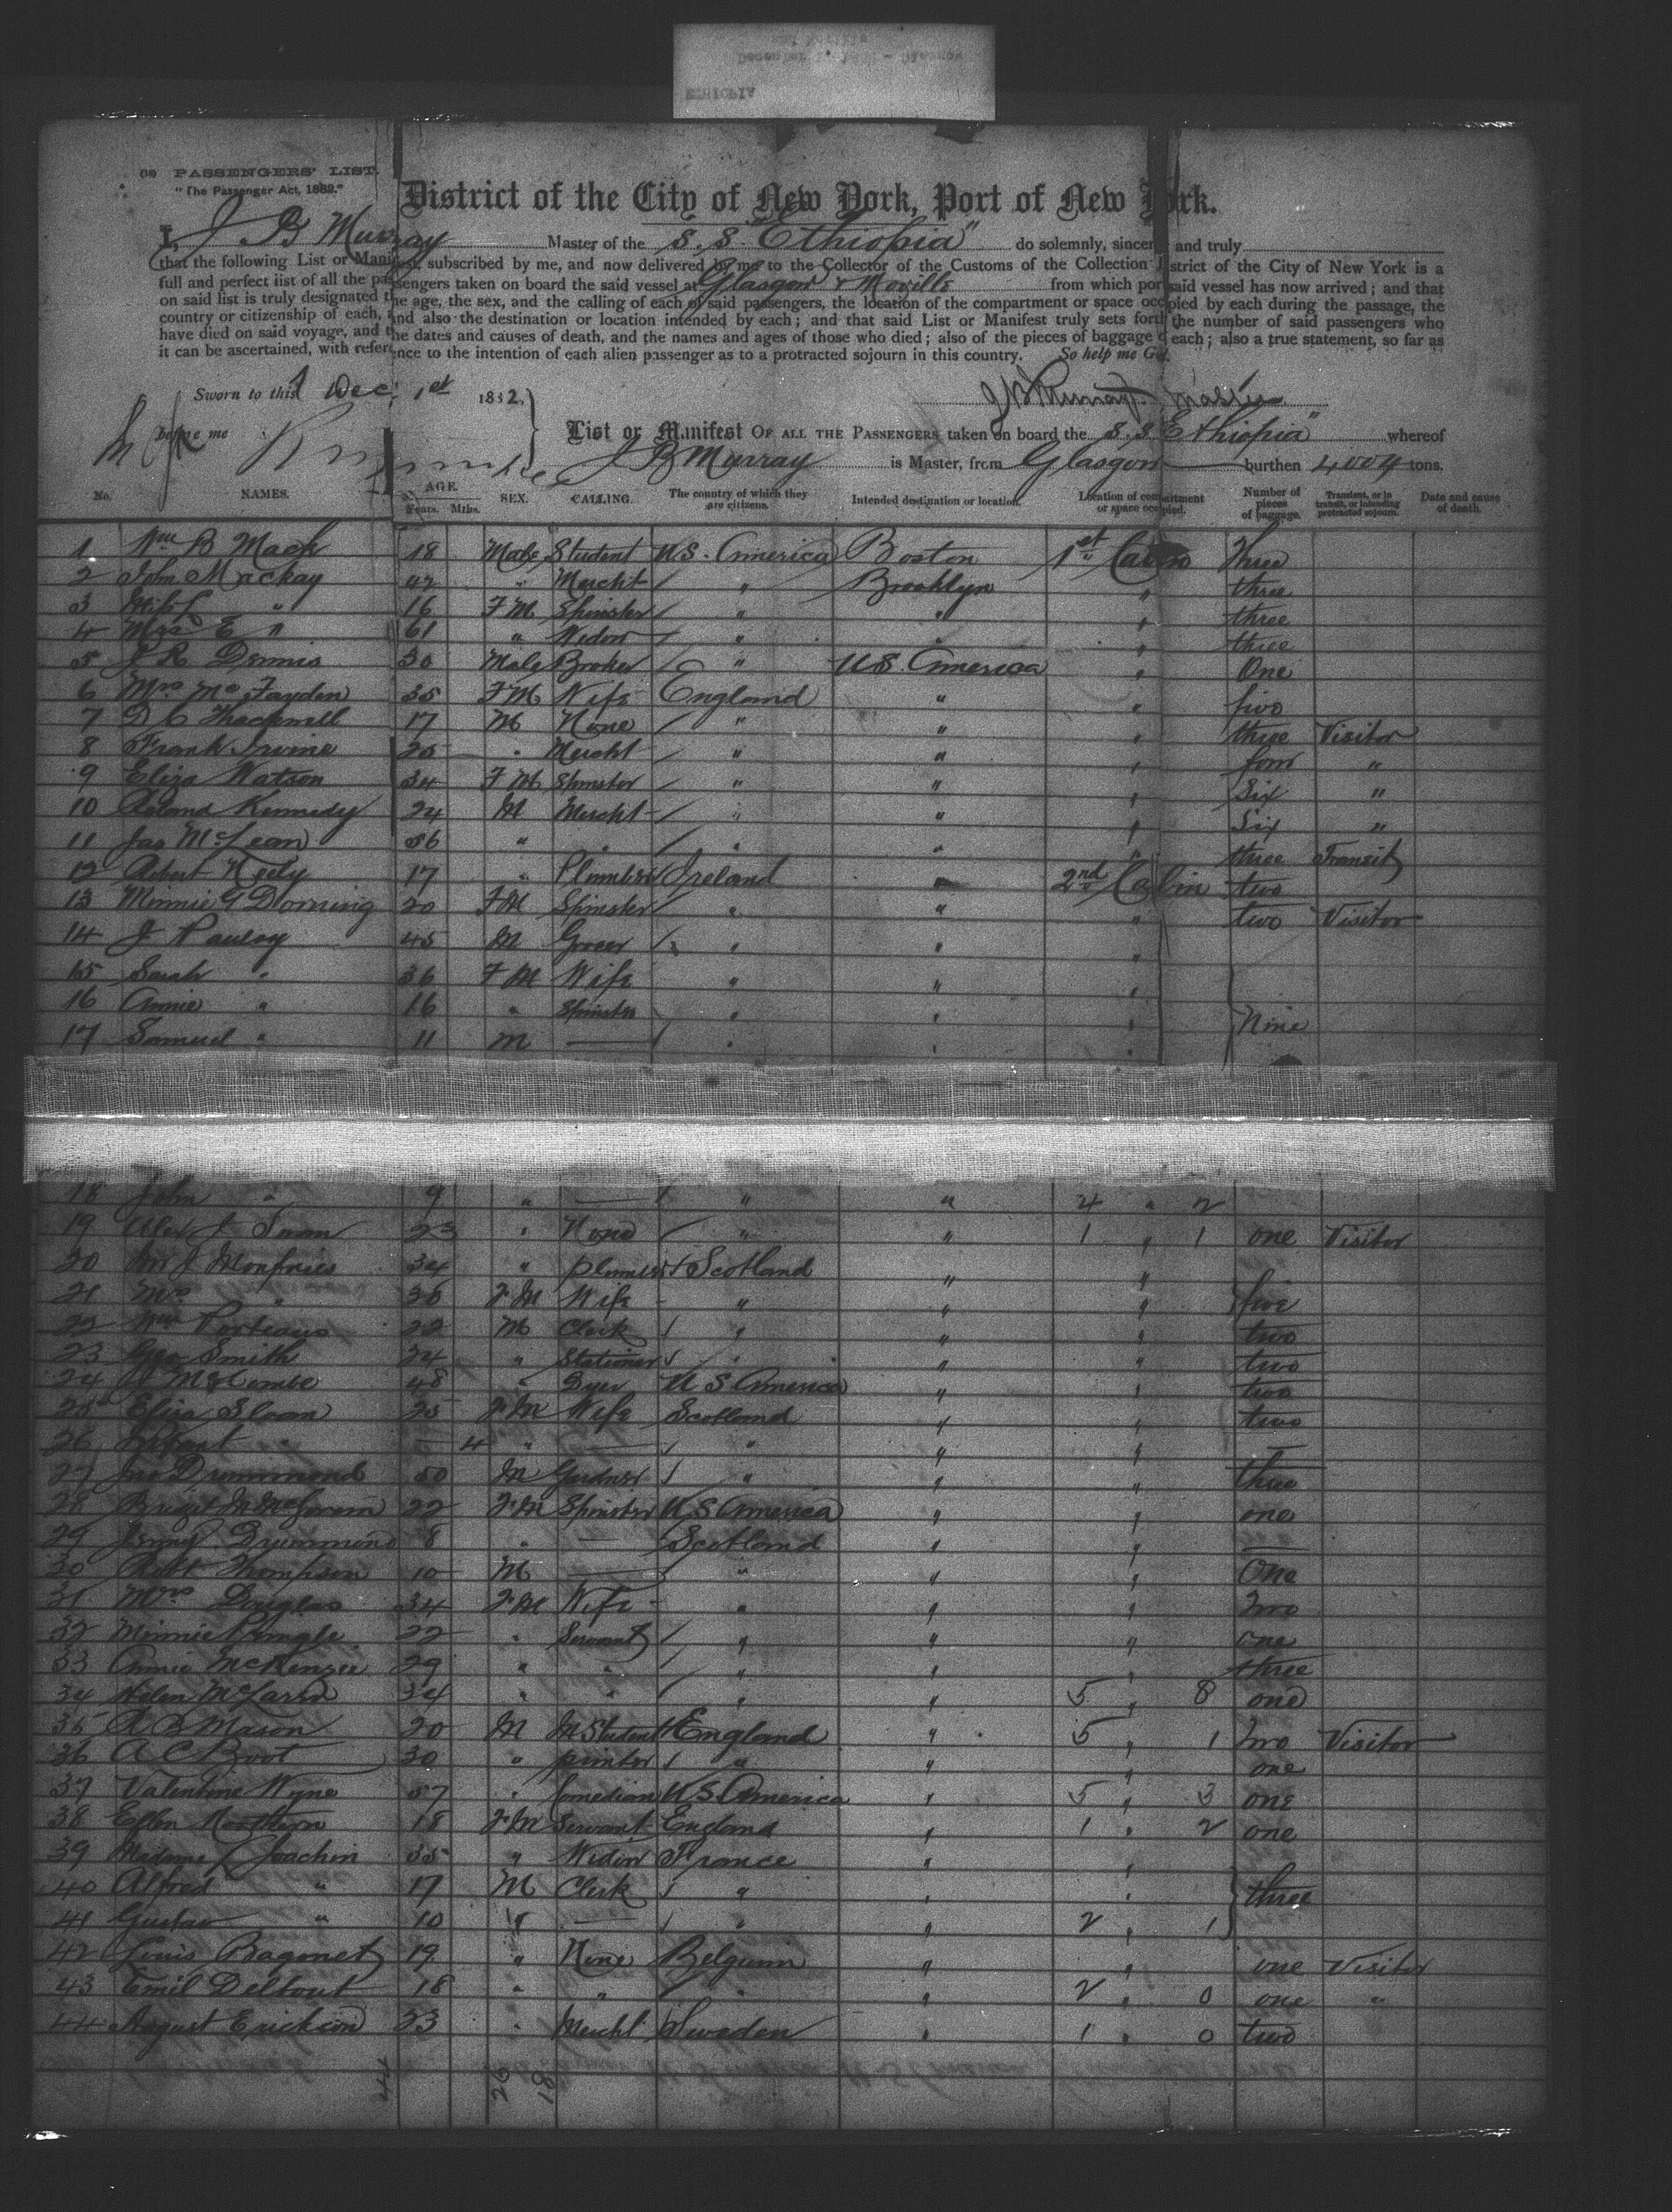 ETHIOPIA
(38) PASSENGERS' LIST.
"The Passenger Act, 1882."
District of the City of New York, Port of New York.
I, J B Murray Master of the S.S. "Ethiopia" do solemnly, sincerely and truly
that the following List or Manifest, subscribed by me, and now delivered by me to the Collector of the Customs of the Collection District of the City of New York is a
full and perfect list of all the passengers taken on board the said vessel at Glasgow & Moville from which port said vessel has now arrived; and that
on said list is truly designated the age, the sex, and the calling of each of said passengers, the location of the compartment or space occupied by each during the passage, the
country or citizenship of each, and also the destination or location intended by each; and that said List or Manifest truly sets forth the number of said passengers who
have died on said voyage, and the dates and causes of death, and the names and ages of those who died; also of the pieces of baggage of each; also a true statement, so far as
it can be ascertained, with reference to the intention of each alien passenger as to a protracted sojourn in this country. So help me God.
Sworn to this 1 Dec. 1st 1882,
J B Murray Master
before me
List or Manifest OF ALL THE PASSENGERS taken on board the S.S. Ethiopia" whereof
J B Murray is Master, from Glasgow burthen 4004 tons.
No. NAMES. AGE. Years. Mths. SEX. CALLING. The country of which they are citizens. Intended destination or location. Location of compartment or space occupied. Number of pieces of baggage. Transient, or in transit, or intending protracted sojourn. Date and cause of death.
1 Wm B Mack 18 Male Student U.S. America Boston 1st Cabin Three
2 John Mackay 42 " Mercht / " Brooklyn " three
3 Miss " 16 FM Spinster / " " " three
4 Mrs E " 61 " Widow / " " " three
5 J R Dennis 30 Male Broker / " U.S. America " One
6 Mrs Mc Fayden 35 FM Wife England " " five
7 D C Thackwell 17 M None / " " " three Visitor
8 Frank Irvine 25 " Mercht " " " four "
9 Eliza Watson 34 FM Spinster / " " " Six "
10 Roland Kennedy 24 M Mercht / " " " Six "
11 Jas McLean 56 " " / " " " three Transit
12 Robert Neely 17 " Plumber Ireland " 2nd Cabin two
13 Minnie G Dorning 20 FM Spinster / " " " two Visitor
14 J 45 M Grocer / " " "
15 Sarah " 36 FM Wife " " "
16 Annie " 16 " Spinster " " " Nine
17 Samuel " 11 M — / " " "
18 John " 9 " — / " " 4 " 2
19 Alex J 23 " None / " " 1 " 1 one Visitor
20 J 34 " plumber / Scotland " "
21 Mrs " 36 FM Wife - " " " five
22 Wm Porteous 22 M Clerk / " " " two
23 Geo Smith 24 " Stationer / " " " two
24 48 " Dyer U S America " " two
25 Eliza Sloan 25 FM Wife Scotland " " two
26 Infant " — 4 " — / " " " —
27 Drummond 50 M Gardner / " " " three
28 22 FM Spinster U S America " " one
29 Drummond 8 " — Scotland " " —
30 Robt Thompson 10 M — " " " One
31 Mrs Douglas 34 FM Wife - " " " Two
32 Minnie Pringle 22 " Servant / " " " one
33 Annie McKenzie 29 " " / " " " three
34 Helen McLaren 34 " " / " " 5 " 8 one
35 R B Mason 20 M M Student England " 5 " 1 two Visitor
36 A C Boot 30 " printer / " " " one
37 Valentine Wyne 57 " Comedian U S America " 5 " 3 one
38 Ellen Northern 18 FM Servant England " 1 " 2 one
39 Madame Joachin 35 " Widow France " "
40 Alfred " 17 M Clerk / " " " three
41 Gustav " 10 " — / " " 2 " 1
42 Louis Bagonet 19 " None Belgium " " one Visitor
43 Emil Deltout 18 " " " " 2 " 0 one "
44 August Erickson 23 " Mercht Sweden " 1 " 0 two
44 26 18